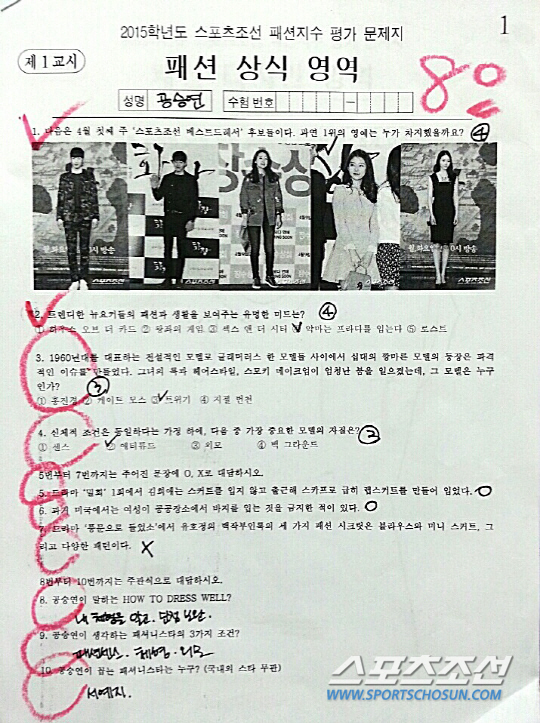 1
2015학년도 스포츠조선 패션지수 평가 문제지
제 1 교시
패션 상식 영역
80
성명 공승연 수험 번호 –
1. 다음은 4월 첫째 주 '스포츠조선 베스트드레서' 후보들이다. 과연 1위의 영예는 누가 차지했을까요? ④
2. 트렌디한 뉴요커들의 패션과 생활을 보여주는 유명한 미드는? ④
① 하우스 오브 더 카드 ② 왕좌의 게임 ③ 섹스 앤 더 시티 ④ 악마는 프라다를 입는다 ⑤ 로스트
3. 1960년대를 대표하는 전설적인 모델로 글래머러스 한 모델들 사이에서 십대의 깡마른 모델의 등장은 파격
적인 이슈를 만들었다. 그녀의 톡자 헤어스타일, 스모키 메이크업이 엄청난 붐을 일으켰는데, 그 모델은 누구
인가? ③
① 홍진경 ② 케이트 모스 ③ 트위기 ④ 지젤 번천
4. 신체적 조건은 동일하다는 가정 하에, 다음 중 가장 중요한 모델의 자질은? ②
① 센스 ② 애티튜드 ③ 외모 ④ 백 그라운드
5번부터 7번까지는 주어진 문장에 O, X로 대답하시오.
5. 드라마 '밀회' 1회에서 김희애는 스커트를 입지 않고 출근해 스카프로 급히 랩스커트를 만들어 입었다. O
6. 과거 미국에서는 여성이 공공장소에서 바지를 입는 것을 금지한 적이 있다. O
7. 드라마 '풍문으로 들었소'에서 유호정의 백작부인룩의 세 가지 패션 시크릿은 블라우스와 미니 스커트, 그
리고 다양한 패턴이다. X
8번부터 10번까지는 주관식으로 대답하시오.
8. 공승연이 말하는 HOW TO DRESS WELL?
내 체형을 알고, 단점 보완.
9. 공승연이 생각하는 패셔니스타의 3가지 조건?
패션센스, 체형, 미모
10. 공승연이 꼽는 패셔니스타는 누구? (국내외 스타 무관)
서예지.
스포츠조선
WWW.SPORTSCHOSUN.COM